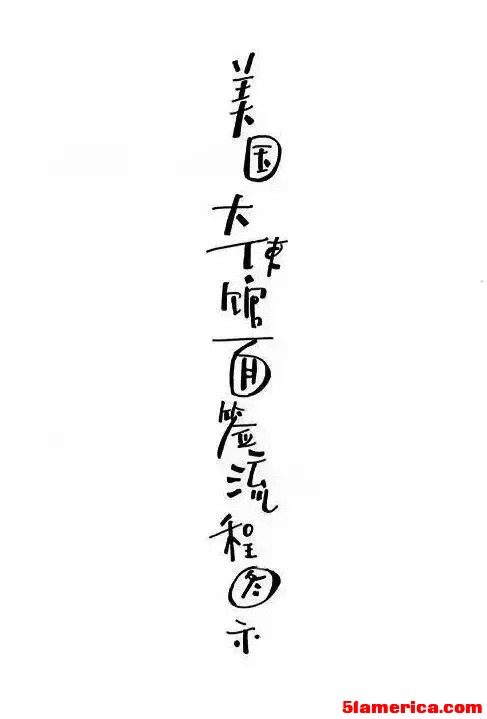 美国大使馆面签流程图示
51america.com